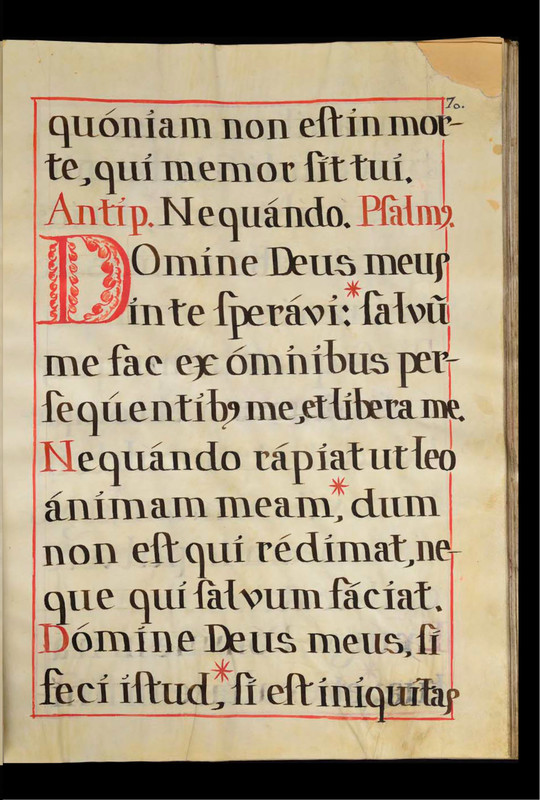 70.
quóniam non eſt in mor-
te, qui memor ſit tui.
Antip. Nequándo. Pſalmꝰ.
DOmine Deus meus
in te ſperávi: * ſalvũ
me fac ex ómnibus per-
ſeqúentibꝰ me, et libera me.
Nequándo rápiat ut leo
ánimam meam, * dum
non eſt qui rédimat, ne-
que qui ſalvum fáciat.
Dómine Deus meus, ſi
feci iſtud, * ſi eſt iniquitas